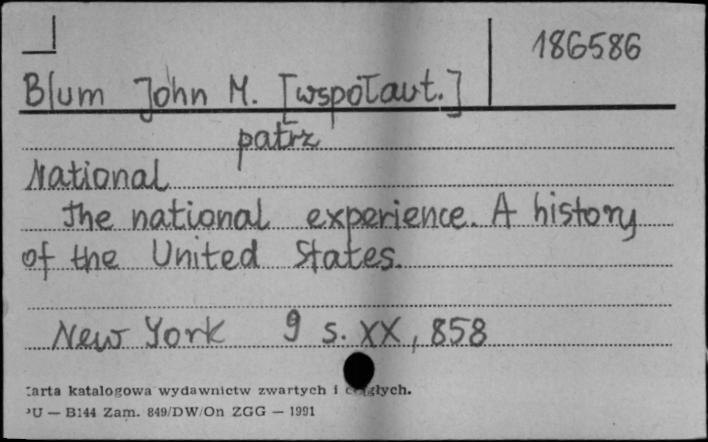 186586
Blum John M. [wspołaut.]
patrz
National
The national experience. A history
of the United States.
New York 9 s. XX, 858
Karta katalogowa wydawnictw zwartych i ciągłych.
PU — B144 Zam. 849/DW/On ZGG — 1991